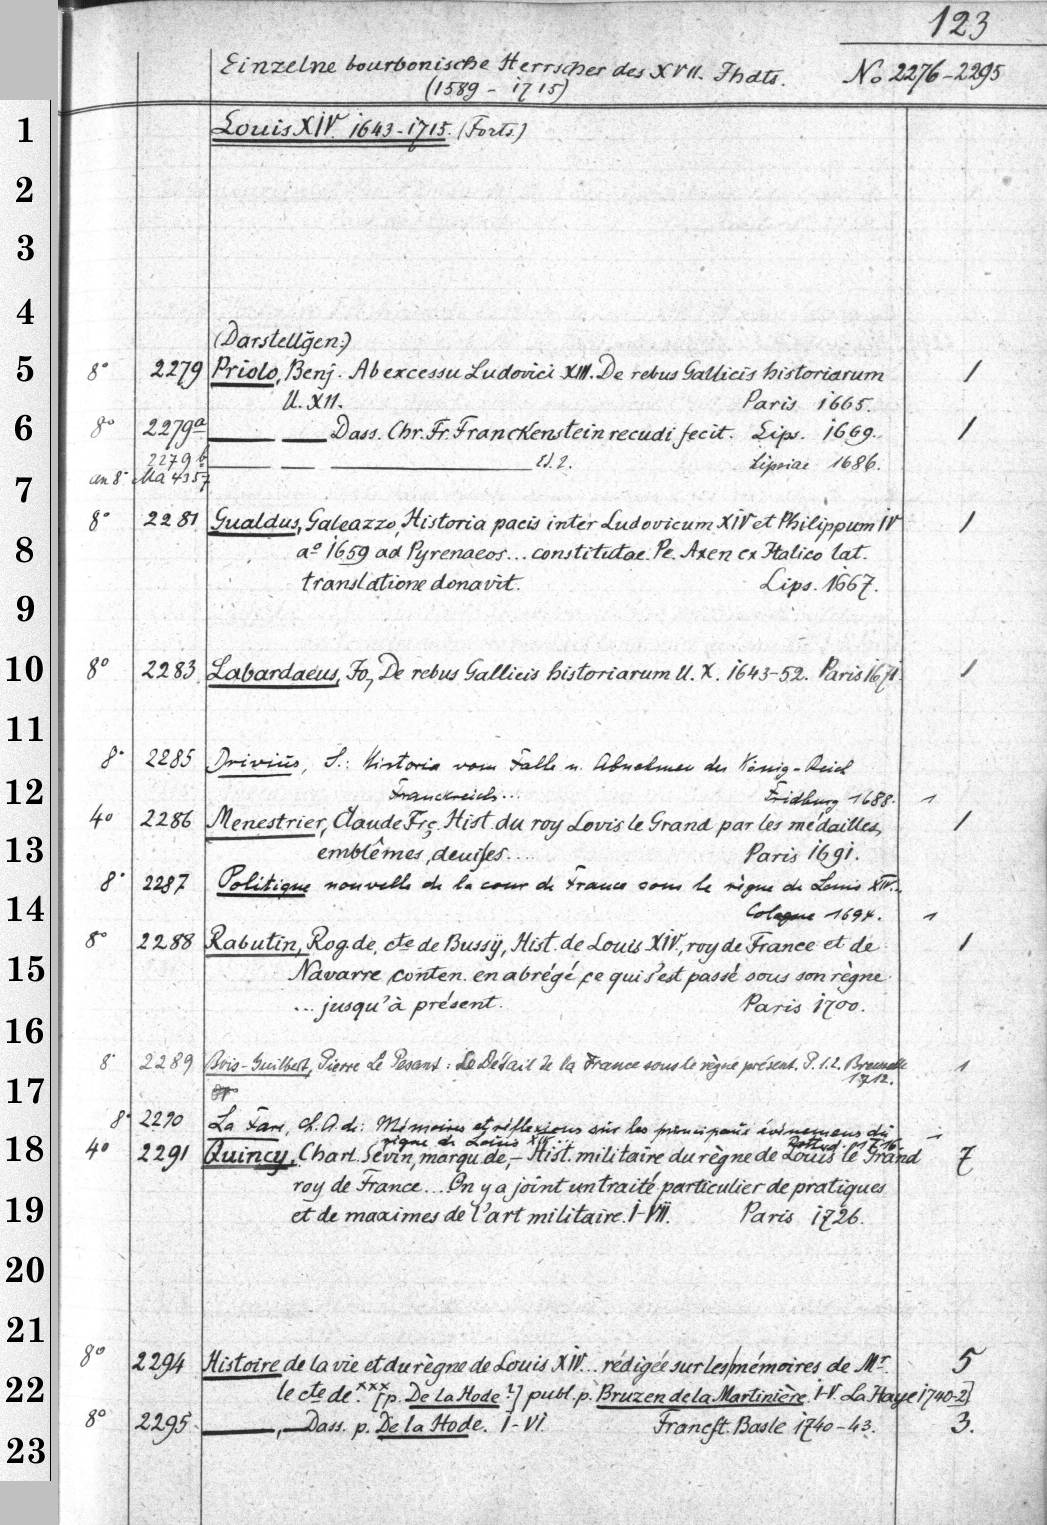 123
Einzelne bourbonische Herrscher des XVII. Jhdts. No 2276-2295
(1589 - 1715)
1 Louis XIV. 1643-1715. (Forts.)
2
3
4
(Darstellgen:)
5 8° 2279 Priolo, Benj. Ab excessu Ludovici XIII. De rebus Gallicis historiarum 1
ll. XII. Paris 1665.
6 8° 2279a — — Dass. Chr. Fr. Franckenstein recudi fecit. Lips. 1669. 1
2279b — — — Ed. 2. Lipsiae 1686.
7 an 8° Ma 4357
8° 2281 Gualdus, Galeazzo, Historia pacis inter Ludovicum XIV et Philippum IV 1
8 a° 1659 ad Pyrenaeos... constitutae. Pe. Axen ex Italico lat.
translatione donavit. Lips. 1667.
9
10 8° 2283 Labardaeus, Jo., De rebus Gallicis historiarum ll. X. 1643-52. Paris 1671. 1
11
8° 2285 Drivius, S.: Historia vom Falle u. Abnehmen des König-Reich
12 Franckreichs... Fridburg 1688. 1
4° 2286 Menestrier, Claude Frç. Hist. du roy Lovis le Grand par les médailles, 1
13 emblêmes, deuises.... Paris 1691.
8° 2287 Politique nouvelle de la cour de France sous le règne de Louis XIV..
14 Cologne 1694. 1
8° 2288 Rabutin, Rog. de, cte de Bussÿ, Hist. de Louis XIV, roy de France et de 1
15 Navarre, conten. en abrégé ce qui s'est passé sous son règne
... jusqu'à présent. Paris 1700.
16
8° 2289 Bois-Guilbert, Pierre Le Pesant: Le Détail de la France sous le règne présent. P. 1.2. Bruxelle 1
17 1712.
8° 2290 La Fare, Ch. A. de: Mémoires et réflexions sur les principaux événemens du
règne de Louis XIV... Rotterd. 1716. 1
18 4° 2291 Quincy, Charl. Sévin, marqu. de, - Hist. militaire du règne de Louis le Grand 7
roy de France... On y a joint un traité particulier de pratiques
19 et de maximes de l'art militaire. I-VII. Paris 1726.
20
21
8° 2294 Histoire de la vie et du règne de Louis XIV... rédigée sur les mémoires de Mr. 5
22 le cte de xxx [p. De la Hode?] publ. p. Bruzen de la Martinière. I-V. La Haye 1740-2]
8° 2295 —, — Dass. p. De la Hode. I-VI. Francft. Basle 1740-43. 3.
23